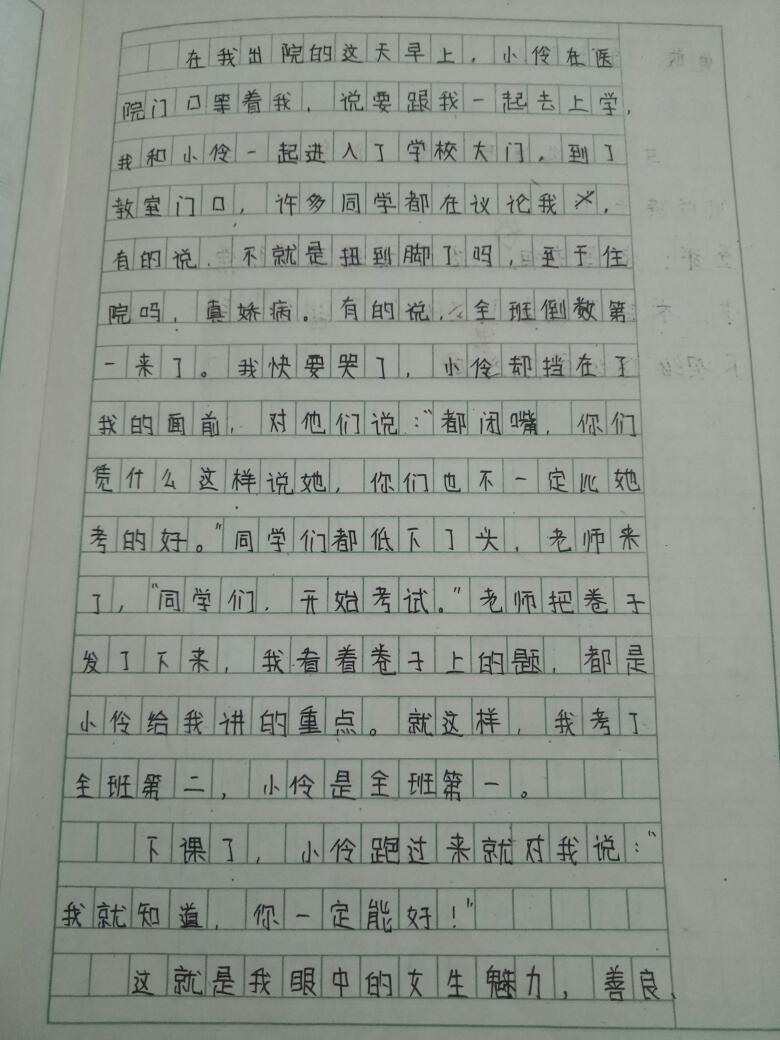 在我出院的这天早上，小伶在医
院门口罩着我，说要跟我一起去上学，
我和小伶一起进入了学校大门，到了
教室门口，许多同学都在议论我，
有的说，不就是扭到脚了吗，至于住
院吗，真娇病。有的说，全班倒数第
一来了。我快要哭了，小伶却挡在了
我的面前，对他们说：“都闭嘴，你们
凭什么这样说她，你们也不一定比她
考的好。”同学们都低下了头，老师来
了，“同学们，开始考试。”老师把卷子
发了下来，我看着卷子上的题，都是
小伶给我讲的重点。就这样，我考了
全班第二，小伶是全班第一。
下课了，小伶跑过来就对我说：“
我就知道，你一定能好！”
这就是我眼中的女生魅力，善良、